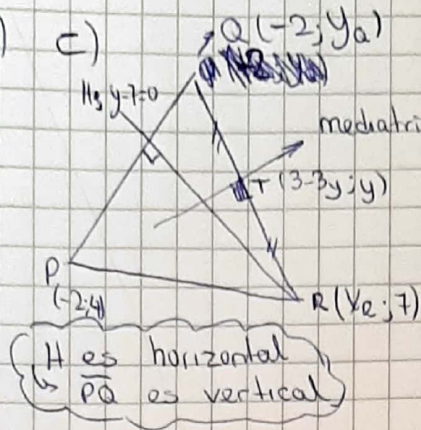 c)
Q (-2; yQ)
H: y-7=0
mediatri
T (3-3y; y)
P
(-2; 4)
R (xR; 7)
H es horizontal
↳ PQ es vertical